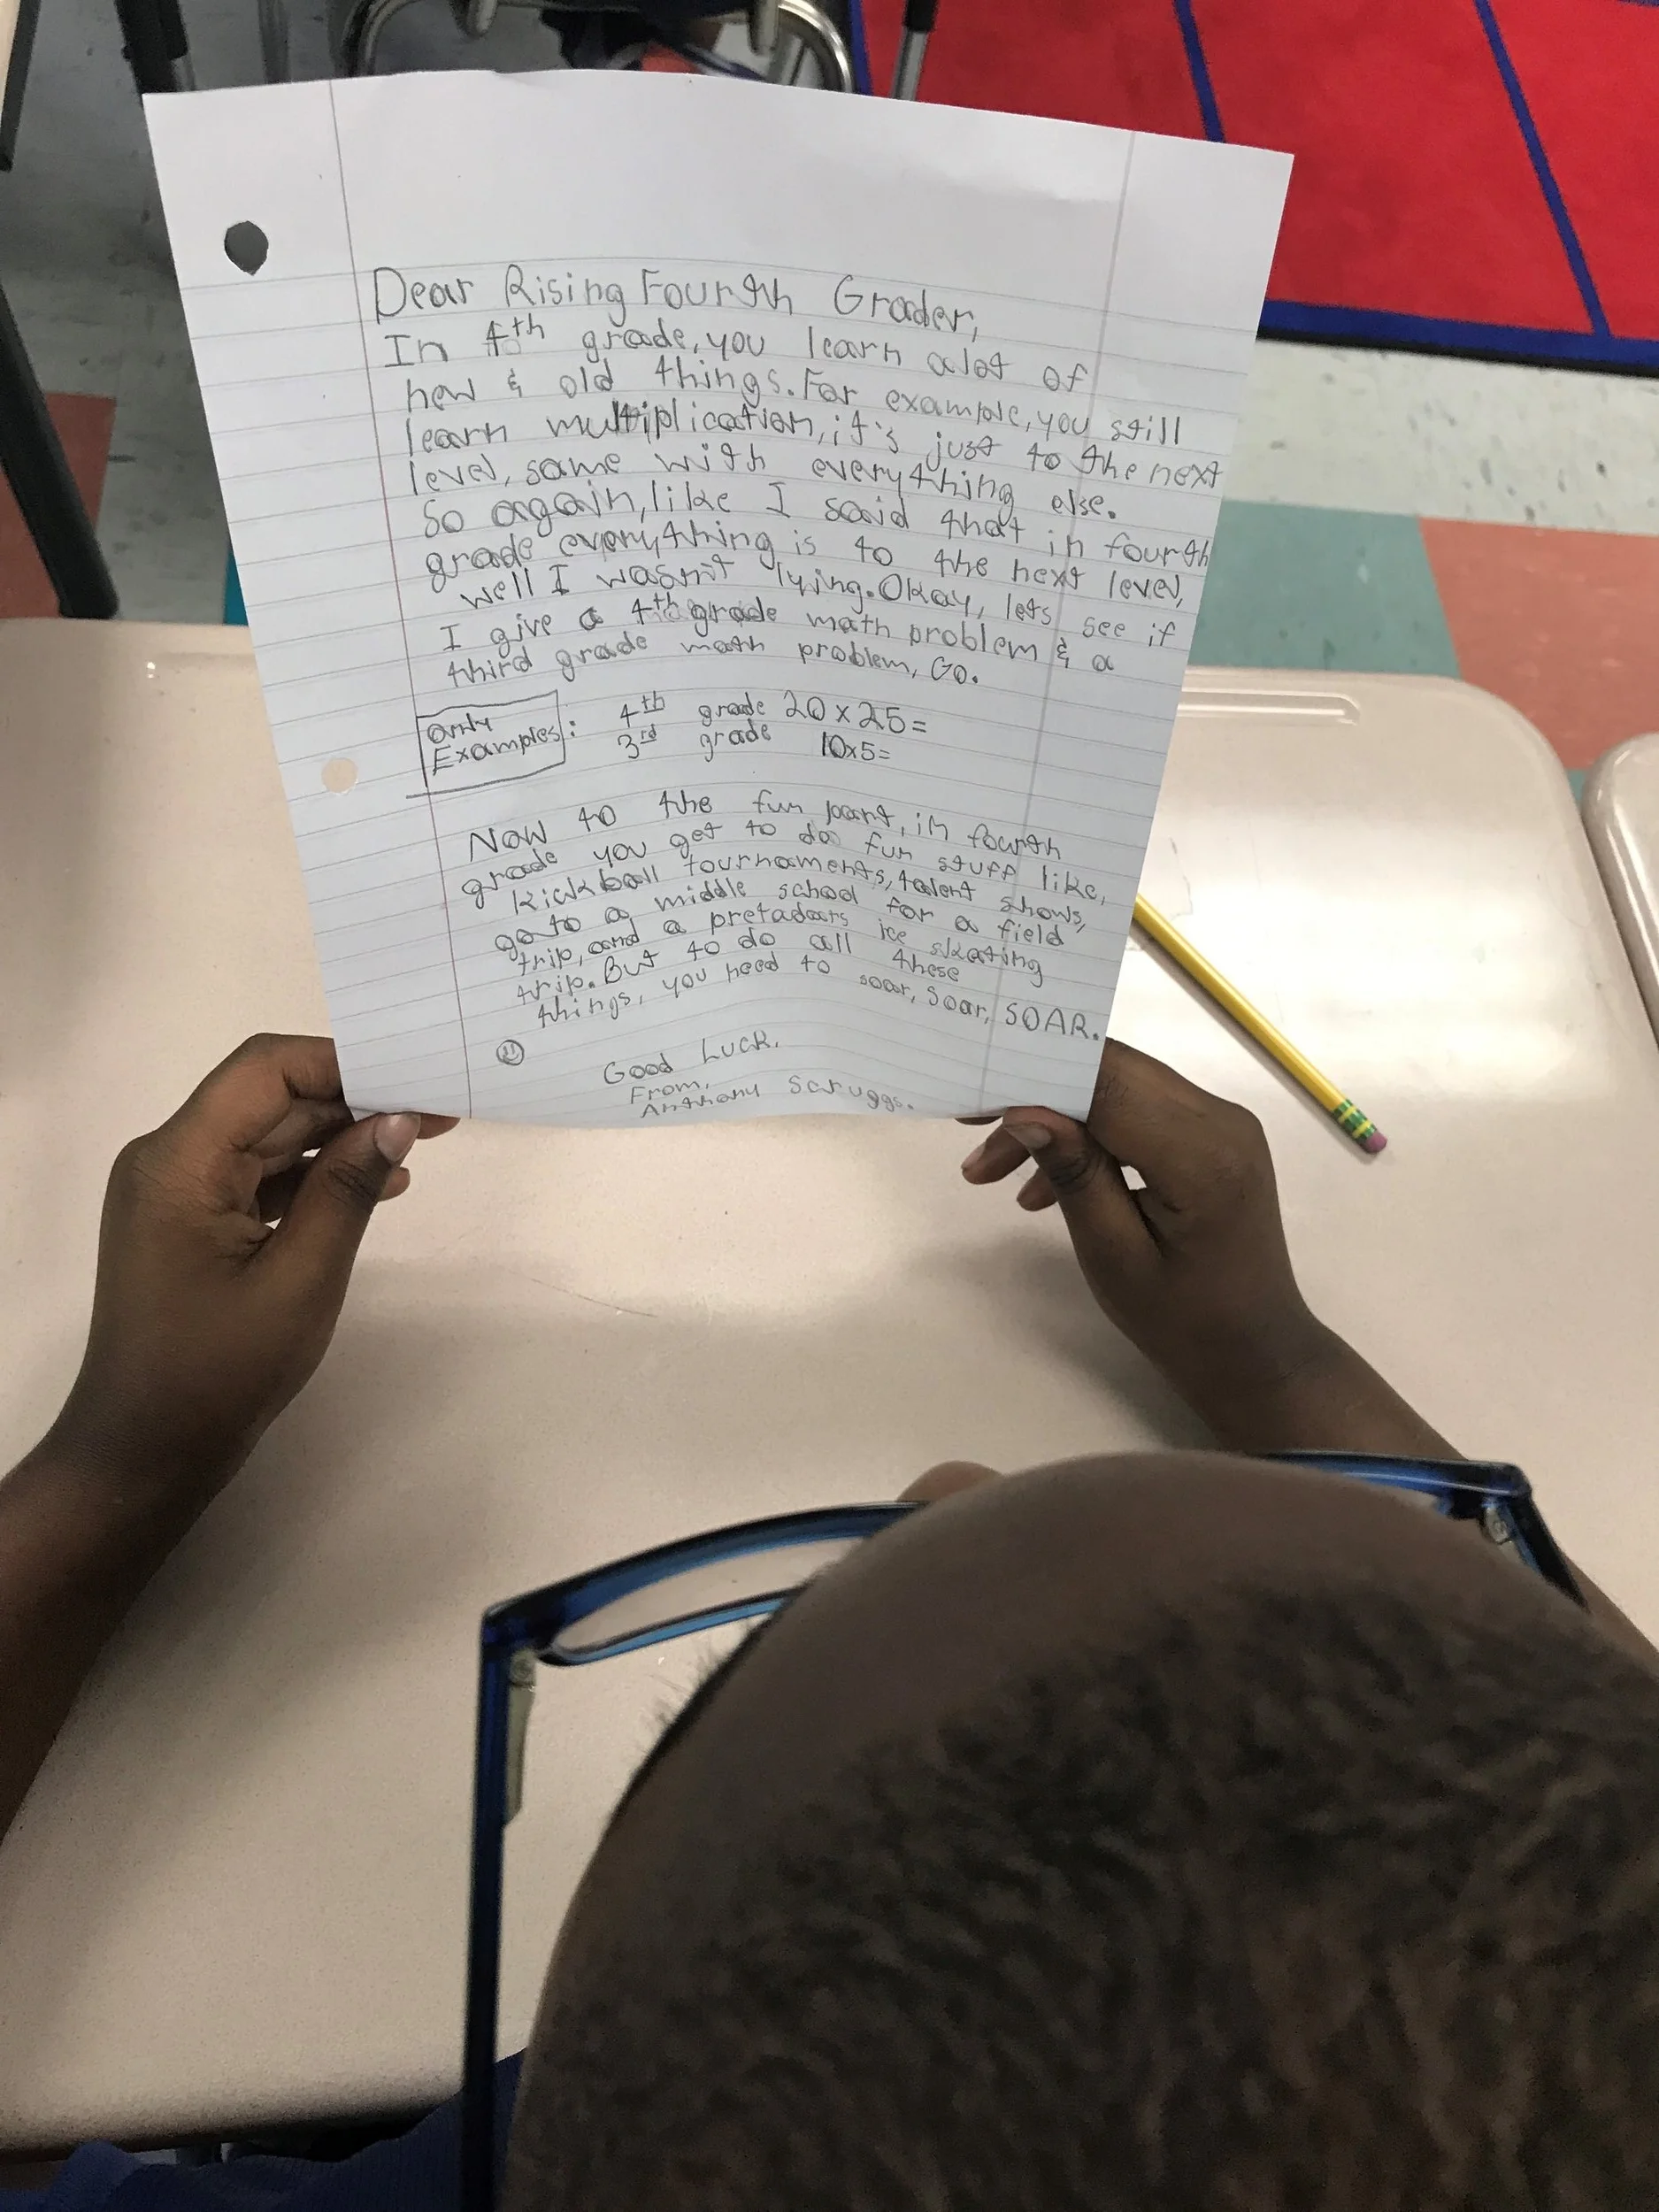 Dear Rising Fourth Grader,
In 4th grade, you learn alot of
new & old things. For example, you still
learn multiplication, it's just to the next
level, same with everything else.
So again, like I said that in fourth
grade everything is to the next level,
well I wasn't lying. Okay, lets see if
I give a 4th grade math problem & a
third grade math problem, Go.
Only
Examples:
4th grade 20x25=
3rd grade 10x5=
Now to the fun part, in fourth
grade you get to do fun stuff like,
kickball tournaments, talent shows,
go to a middle school for a field
trip, and a pretadors ice skating
trip. But to do all these
things, you need to soar, soar, SOAR.
Good Luck.
From,
Anthony Scruggs.